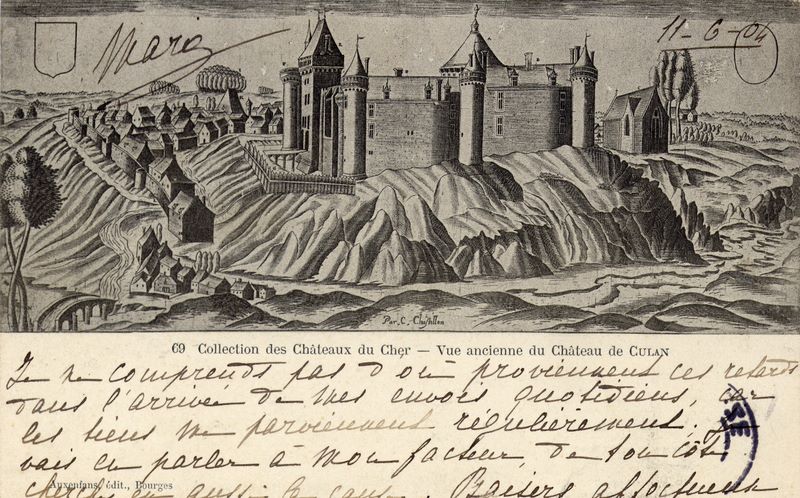 Marg
11-6-04
Par. C. Chastillon
69 Collection des Châteaux du Cher — Vue ancienne du Château de CULAN
Je ne comprends pas d'où proviennent ces retards
dans l'arrivée de mes envois quotidiens, car
les tiens me parviennent régulièrement. Je
vais en parler à mon facteur, de ton côté
cherches en aussi la cause. Baisers affectueux
Auxenfans, édit., Bourges